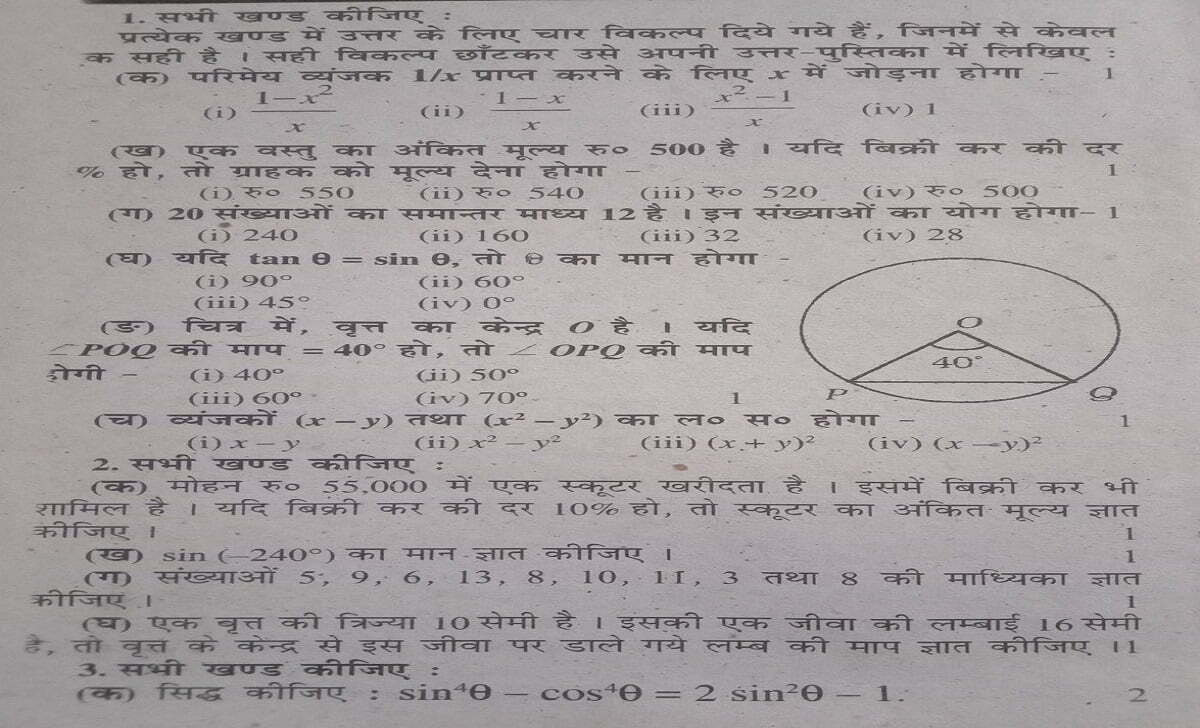 1. सभी खण्ड कीजिए :
प्रत्येक खण्ड में उत्तर के लिए चार विकल्प दिये गये हैं, जिनमें से केवल
क सही है । सही विकल्प छाँटकर उसे अपनी उत्तर-पुस्तिका में लिखिए :
(क) परिमेय व्यंजक 1/x प्राप्त करने के लिए x में जोड़ना होगा – 1
(i) (1–x²)/x (ii) (1–x)/x (iii) (x²–1)/x (iv) 1
(ख) एक वस्तु का अंकित मूल्य रु० 500 है । यदि बिक्री कर की दर
% हो, तो ग्राहक को मूल्य देना होगा – 1
(i) रु० 550 (ii) रु० 540 (iii) रु० 520 (iv) रु० 500
(ग) 20 संख्याओं का समान्तर माध्य 12 है । इन संख्याओं का योग होगा– 1
(i) 240 (ii) 160 (iii) 32 (iv) 28
(घ) यदि tan θ = sin θ, तो θ का मान होगा –
(i) 90° (ii) 60°
(iii) 45° (iv) 0°
(ङ) चित्र में, वृत्त का केन्द्र O है । यदि
∠POQ की माप = 40° हो, तो ∠ OPQ की माप
होगी – (i) 40° (ii) 50°
(iii) 60° (iv) 70° 1
O
40°
P
Q
(च) व्यंजकों (x – y) तथा (x² – y²) का ल० स० होगा – 1
(i) x – y (ii) x² – y² (iii) (x + y)² (iv) (x – y)²
2. सभी खण्ड कीजिए :
(क) मोहन रु० 55,000 में एक स्कूटर खरीदता है । इसमें बिक्री कर भी
शामिल है । यदि बिक्री कर की दर 10% हो, तो स्कूटर का अंकित मूल्य ज्ञात
कीजिए । 1
(ख) sin (–240°) का मान ज्ञात कीजिए । 1
(ग) संख्याओं 5, 9, 6, 13, 8, 10, 11, 3 तथा 8 की माध्यिका ज्ञात
कीजिए । 1
(घ) एक वृत्त की त्रिज्या 10 सेमी है । इसकी एक जीवा की लम्बाई 16 सेमी
है, तो वृत्त के केन्द्र से इस जीवा पर डाले गये लम्ब की माप ज्ञात कीजिए ।1
3. सभी खण्ड कीजिए :
(क) सिद्ध कीजिए : sin⁴θ – cos⁴θ = 2 sin²θ – 1. 2